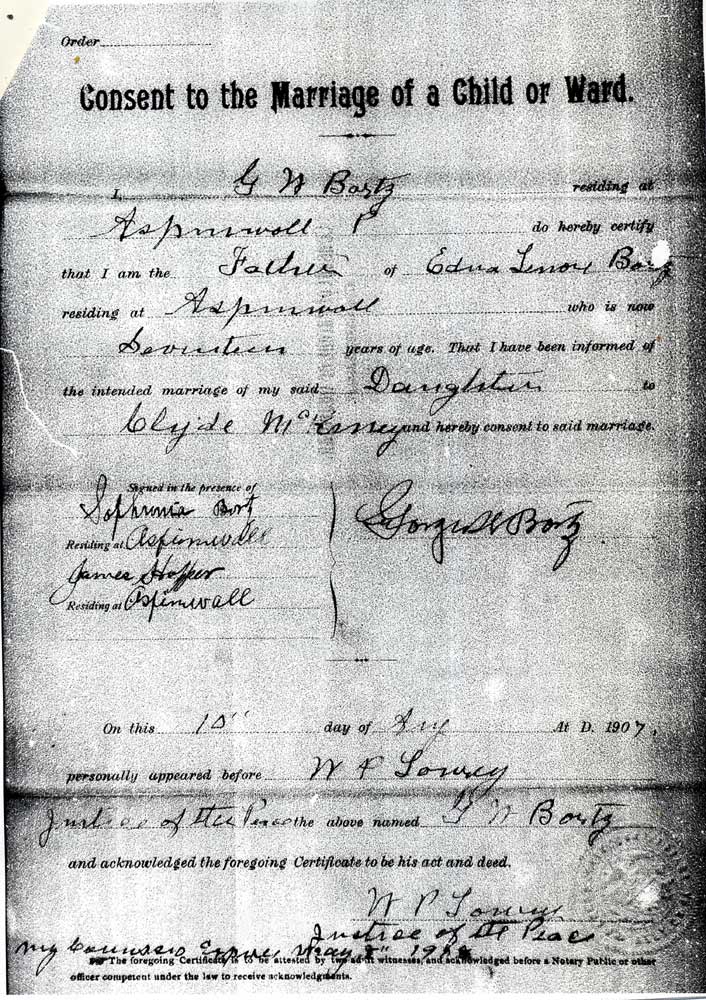 Order
Consent to the Marriage of a Child or Ward.
I, G W Bortz residing at
Aspinwall P do hereby certify
that I am the Father of Edna Lenore Bortz
residing at Aspinwall who is now
Seventeen years of age. That I have been informed of
the intended marriage of my said Daughter to
Clyde McKinney and hereby consent to said marriage.
Signed in the presence of
Sophronia Bortz
Residing at Aspinwall
James Hopper
Residing at Aspinwall
George W Bortz
On this day of Aug A. D. 1907,
personally appeared before W P Lowry
Justice of the Peace the above named G W Bortz
and acknowledged the foregoing Certificate to be his act and deed.
W P Lowry
Justice of the Peace
My Commission Expires May
The foregoing Certificate is to be attested by two adult witnesses, and acknowledged before a Notary Public or other
officer competent under the law to receive acknowledgments.